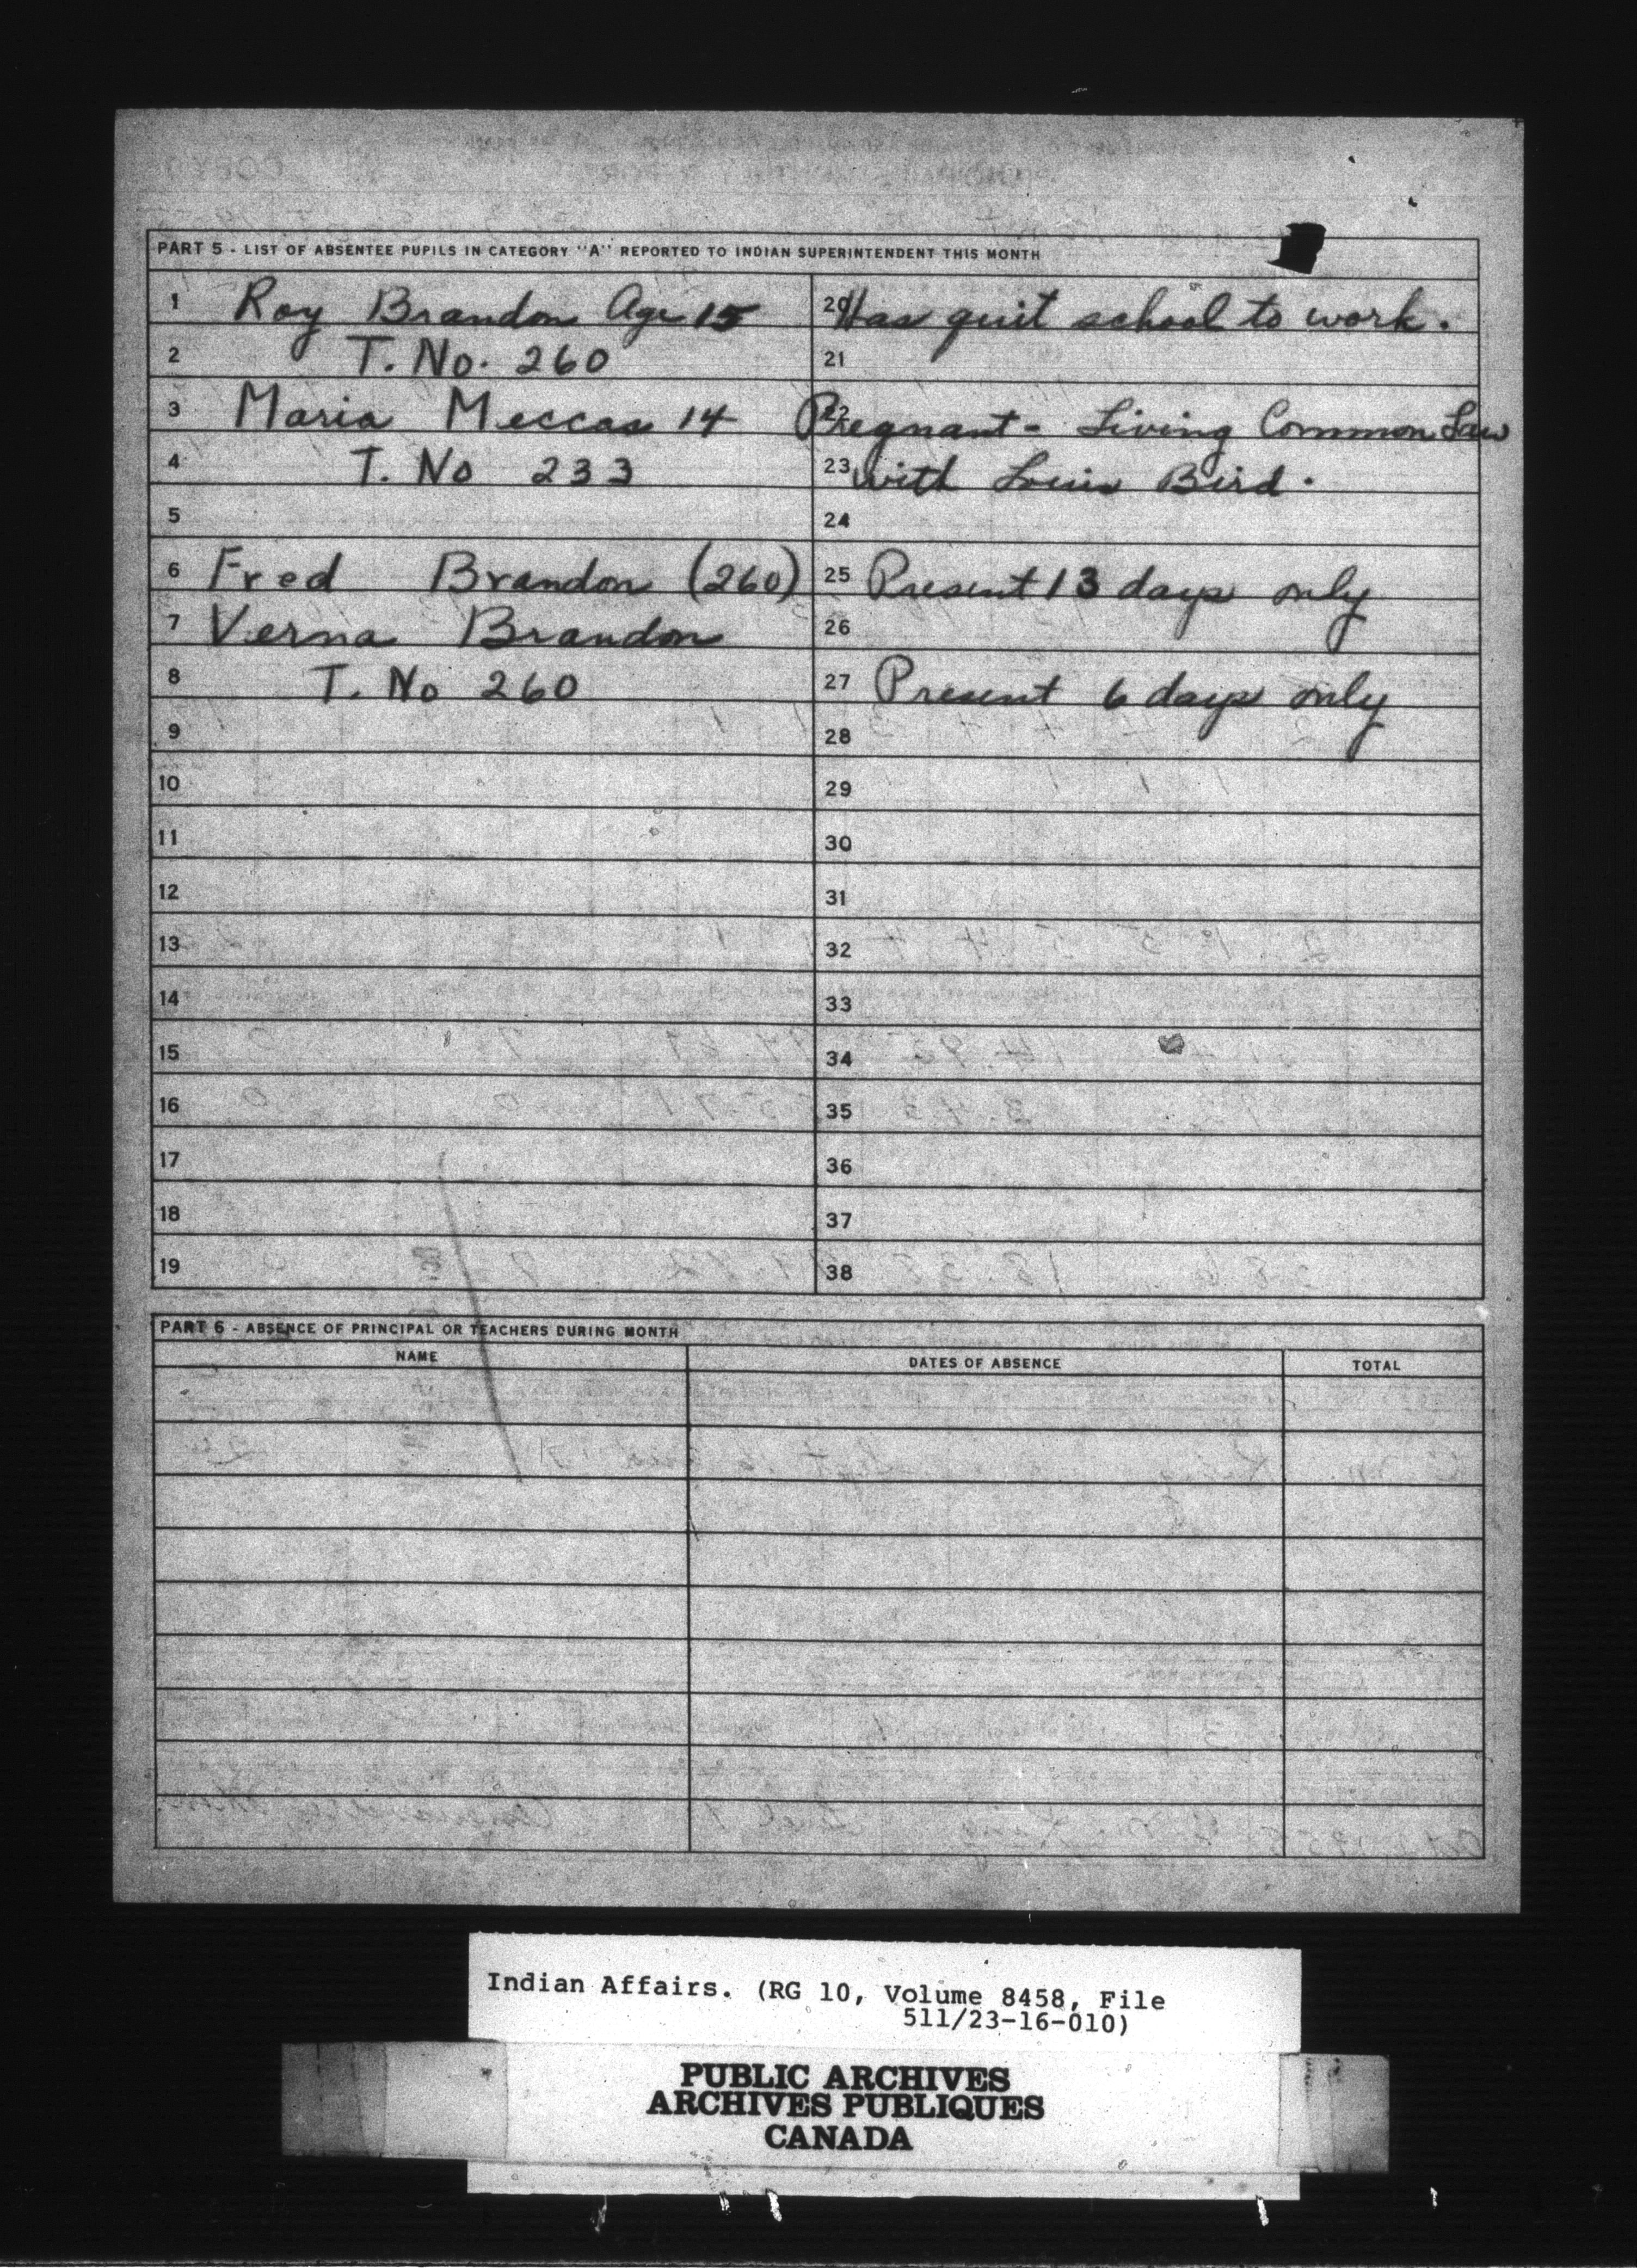 PART 5 - LIST OF ABSENTEE PUPILS IN CATEGORY "A" REPORTED TO INDIAN SUPERINTENDENT THIS MONTH
1 Roy Brandon Age 15 20 Has quit school to work.
2 T. No. 260 21
3 Maria Meccas 14 22 Pregnant - Living Common Law
4 T. No 233 23 with Louis Bird.
5 24
6 Fred Brandon (260) 25 Present 13 days only
7 Verna Brandon 26
8 T. No 260 27 Present 6 days only
9 28
10 29
11 30
12 31
13 32
14 33
15 34
16 35
17 36
18 37
19 38
PART 6 - ABSENCE OF PRINCIPAL OR TEACHERS DURING MONTH
NAME DATES OF ABSENCE TOTAL
Indian Affairs. (RG 10, Volume 8458, File
511/23-16-010)
PUBLIC ARCHIVES
ARCHIVES PUBLIQUES
CANADA